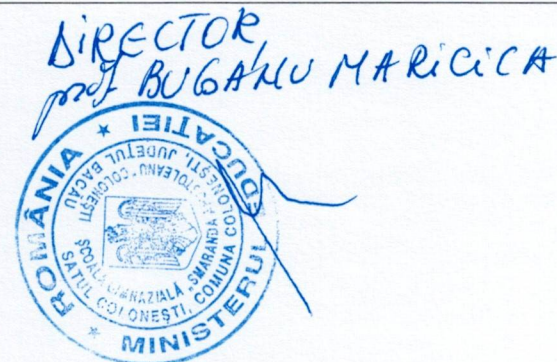 DIRECTOR,
prof BUGANU MARICICA
ROMÂNIA * MINISTERUL EDUCAȚIEI *
ȘCOALA GIMNAZIALĂ „SMARANDA
COLONEȘTI
SATUL COLONEȘTI, COMUNA COLONEȘTI, JUDEȚUL BACĂU